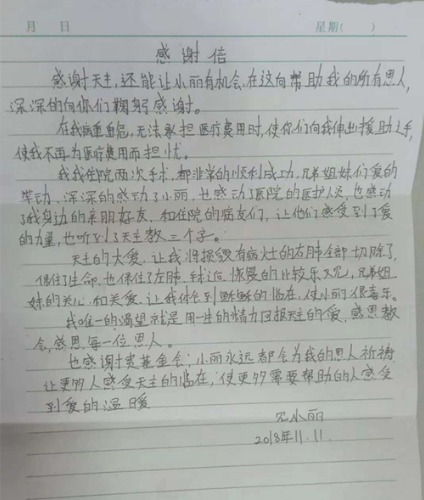 月 日 星期( )
感谢信
感谢天主,还能让小丽有机会,在这向帮助我的所有恩人,
深深的向你们鞠躬感谢。
在我病重垂危,无法承担医疗费用时,使你们向我伸出援助之手,
使我不再为医疗费用而担忧。
我住院两次手术,都非常的顺利成功,兄弟姐妹们爱的
举动,深深的感动了小丽,也感动了医院的医护人员,也感动
了我身边的亲朋好友,和住院的病友们,让他们感受到了爱
的力量,也听到了天主教三个字。
天主的大爱,让我将损毁有病灶的右肺全部切除了,
保住了生命,也保住了左肺,恢复的比较乐观,兄弟姐
妹的关心和关爱,让我体会到的临在,使小丽很喜乐。
我唯一的渴望就是用一生的精力回报天主的爱,感恩教
会,感恩每一位恩人。
也感谢基金会,小丽永远都会为我的恩人祈祷
让更多人感受天主的临在,使更多需要帮助的人感受
到爱的温暖
小丽
2018年11.11.